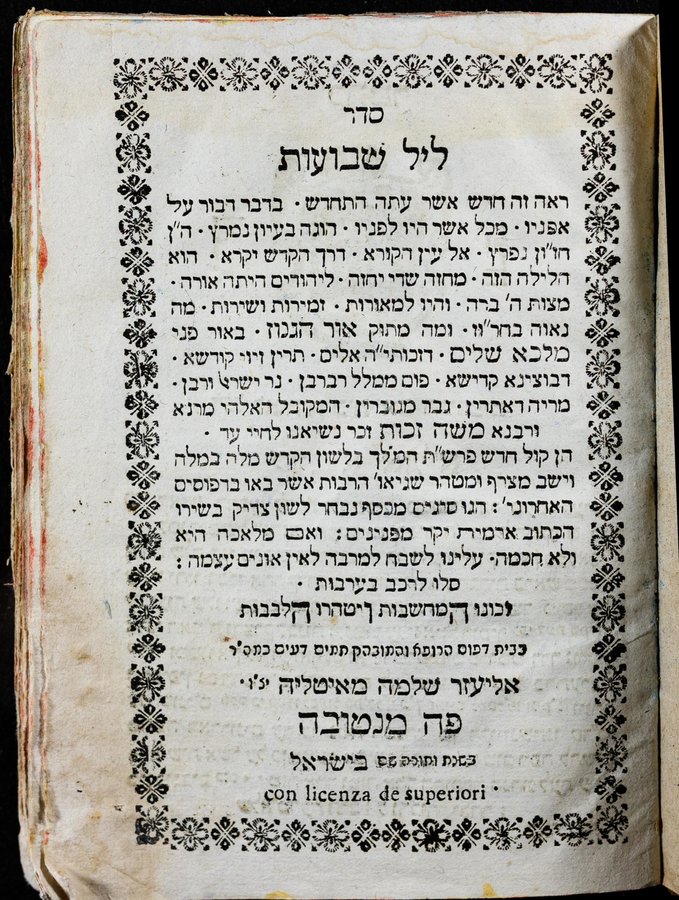 סדר
ליל שבועות
ראה זה חדש אשר עתה התחדש · בדבר דבור על
אפניו · מכל אשר היו לפניו · הוגה בעיון נמרץ · ה"ן
חז"ון נפרץ · אל עין הקורא · דרך הקדש יקרא · הוא
הלילה הזה · מחזה שדי יחזה · ליהודים היתה אורה ·
מצות ה' ברה · והיו למאורות · זמירות ושירות · מה
נאוה בחר"וז · ומה מתוק אור הגנוז · באור פני
מלכא שלים · דזכותי"ה אלים · תרין זיוי קודשא ·
דבוצינא קדישא · פום ממלל רברבן · נר ישראל ורבן ·
מריה דאתרין · גבר מגוברין · המקובל האלהי מרנא
ורבנא משה זכות זכר נשיאנו לחיי עד ·
הן קול חדש פרש"ת המלך בלשון הקדש מלה במלה
וישב מצרף ומטהר שגיאו' הרבות אשר באו בדפוסים
האחרוני' : הגו סיגים מכסף נבחר לשון צדיק בשירו
הכתוב ארמית יקר מפנינים : ואם מלאכה היא
ולא חכמה · עלינו לשבח למרבה לאין אונים עצמה :
סלו לרכב בערבות ·
יכונו המחשבות ויטהרו הלבבות
בבית דפוס הרופא והמובהק תמים דעים כמה"ר
אליעזר שלמה מאיטליה יצ"ו ·
פה מנטובה
בשנת וזאת שם בישראל
con licenza de superiori ·